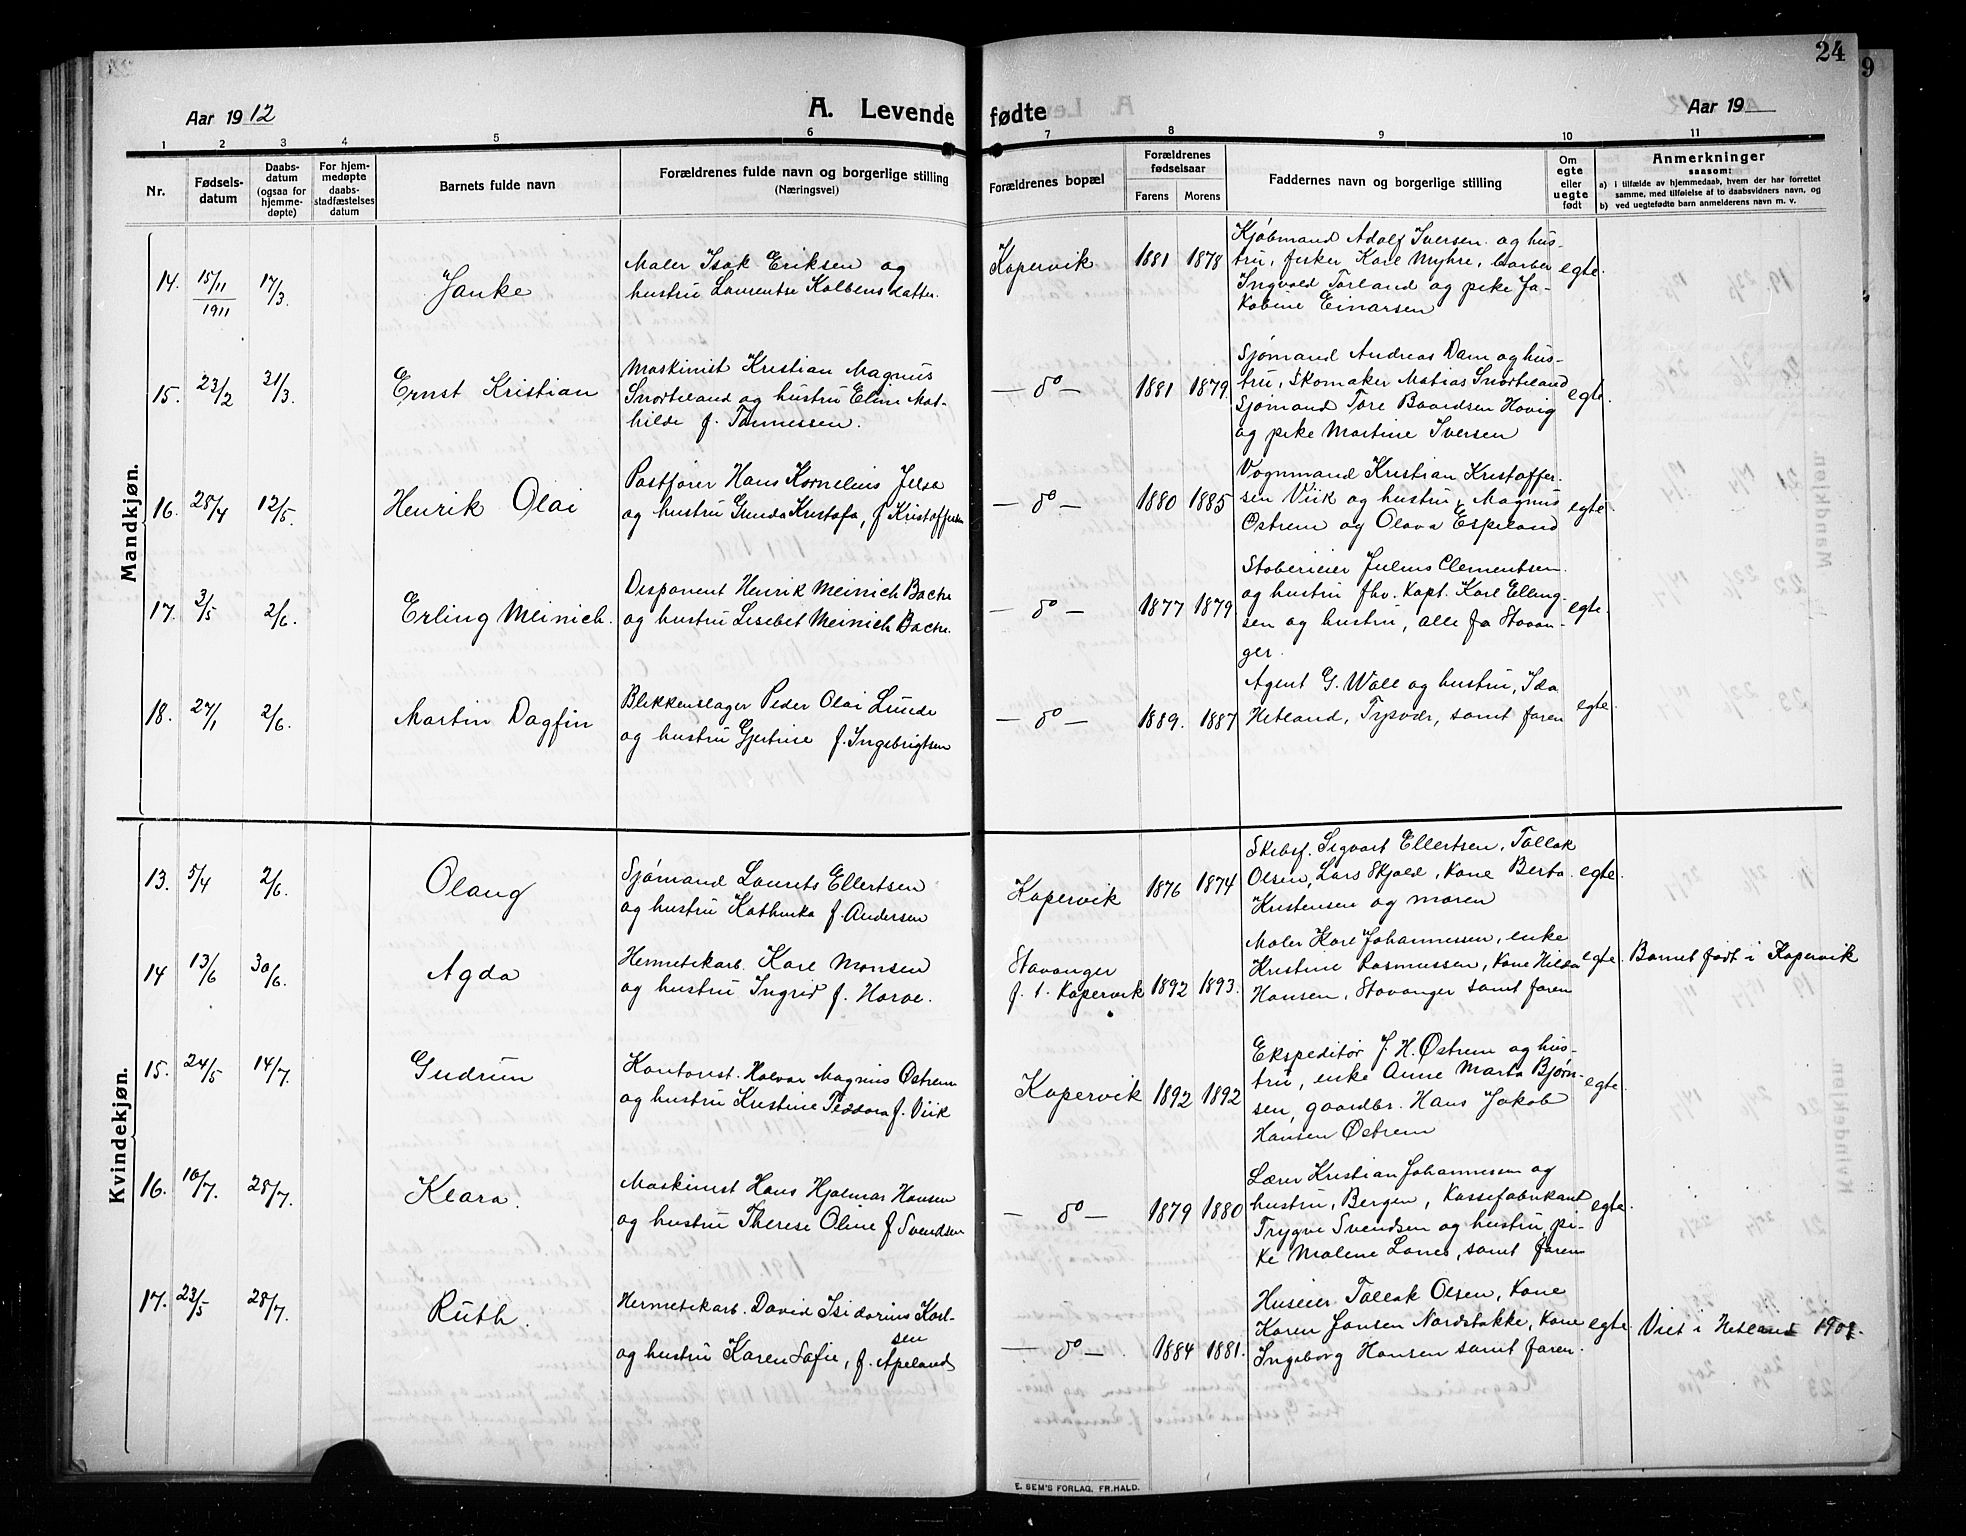 24
9
Aar 1912
A. Levende fødte
Aar 19
1 2 3 4 5 6 7 8 9 10 11
Nr.
Fødsels-
datum
Daabs-
datum
(ogsaa for
hjemme-
døpte)
For hjem-
medøpte
daabs-
stadfæstelses
datum
Barnets fulde navn
Forældrenes fulde navn og borgerlige stilling
(Næringsvei)
Forældrenes bopæl
Forældrenes
fødselsaar
Farens Morens
Faddernes navn og borgerlige stilling
Om
egte
eller
uegte
født
Anmerkninger
saasom:
a) i tilfælde av hjemmedaab, hvem der har forrettet
samme, med tilføielse af to daabsvidners navn, og
b) ved uegtefødte barn anmelderens navn m. v.
Mandkjøn.
14. 15/11 1911 17/3. Janke
Maler Isak Eriksen og
hustru Laurentse Kolbensdatter.
Kopervik 1881 1878
Kjøbmand Adolf Iversen og hus-
tru, fisker Karl Myhre, barber
Ingvald Torland og pike Ja-
kobine Einarsen
egte.
15. 23/2 31/3. Ernst Kristian
Maskinist Kristian Magnus
Snorteland og hustru Elin Mat-
hilde f. Tønnessen.
— do — 1881 1879.
Sjømand Andreas Dam og hus-
tru, Skomaker Matias Snorteland
Sjømand Tore Baardsen Hovig
og pike Martine Iversen
egte.
16. 28/4 12/5. Henrik Olai
Postfører Hans Kornelius Jelsa
og hustru Gunda Kristofa, f. Kristoffersen
— do — 1880 1885
Vognmand Kristian Kristoffer-
sen Viik og hustru, Magnus
Østrem og Olava Espeland
egte
17. 3/5 2/6. Erling Meinich.
Disponent Henrik Meinich Bache
og hustru Lisebet Meinich Bache.
— do — 1877 1879
Stobereier Julius Clementsen
og hustru fhv. Kapt. Karl Elling-
sen og hustru, alle fa Stavan-
ger.
egte.
18. 27/1 2/6. Martin Dagfin
Blikkenslager Peder Olai Lunde
og hustru Gjertine f. Ingebrigtsen
— do — 1889. 1887
Agent G. Wall og hustru, Ida
Hetland, Tysvær, samt faren
egte.
Kvindekjøn.
13. 5/4 2/6. Olaug
Sjømand Laurets Ellertsen
og hustru Kathinka f. Andersen
Kopervik 1876 1874
Skibsf. Sigvart Ellertsen, Tallak
Olsen, Lars Skjold, Kone Berta
Kristensen og moren
egte.
14 13/6 30/6. Agda
Hermetikarb. Karl Monsen
og hustru Ingrid f. Horve.
Stavanger
f. t. Kopervik 1892 1893.
Maler Karl Johannessen, enke
Kristine Rasmussen, Kone Hilda
Hansen, Stavanger samt faren
egte. Barnet født i Kopervik
15. 24/5 14/7. Gudrun
Kontorist. Halvor Magnus Østrem
og hustru Kristine Teodora f. Viik
Kopervik 1892 1892
Ekspeditør J. H. Østrem og hus-
tru, enke Anne Marta Bjørn-
sen, gaardbr. Hans Jakob
Hansen Østrem
egte.
16. 10/7. 28/7. Klara.
Maskinist Hans Hjalmar Hansen
og hustru Therese Oline f Svendsen
— do — 1879 1880
Lærer Kristian Johannessen og
hustru, Bergen, Kassefabrikant
Trygve Svendsen og hustru pi-
ke Malene Lones, samt faren
egte.
17. 23/5 28/7. Ruth.
Hermetikarb. David Isidorius Karl-
sen
og hustru Karen Sofie, f. Apeland
— do — 1884 1881.
Huseier Tallak Olsen, Kone
Karen Jansen Nordstokke, Kone
Ingeborg Hansen samt faren.
egte Viet i Hetland
E. SEM'S FORLAG, FR.HALD.